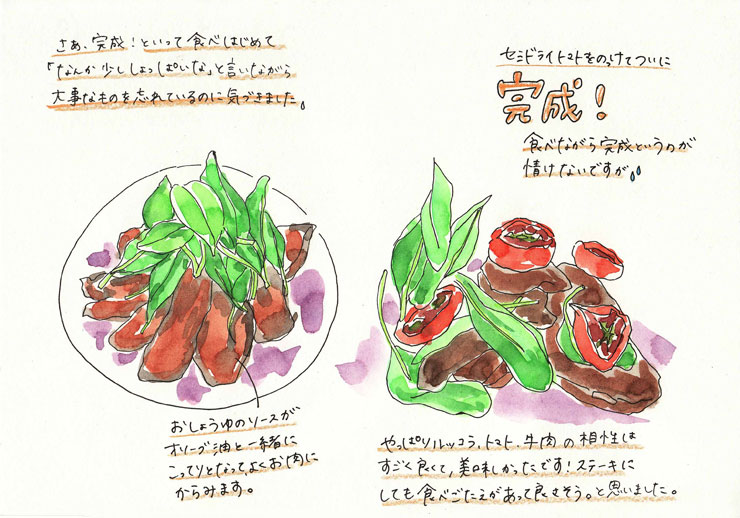 さぁ、完成！といって食べはじめて
「なんか少ししょっぱいな」と言いながら
大事なものを忘れているのに気づきました。
セミドライトマトをのっけてついに
完成！
食べながら完成というのが
情けないですが
おしょうゆのソースが
オリーブ油と一緒に
こってりとなって、よくお肉に
からみます。
やっぱりルッコラ、トマト、牛肉の相性は
すごく良くて、美味しかったです！ステーキに
しても食べごたえがあって良さそう。と思いました。